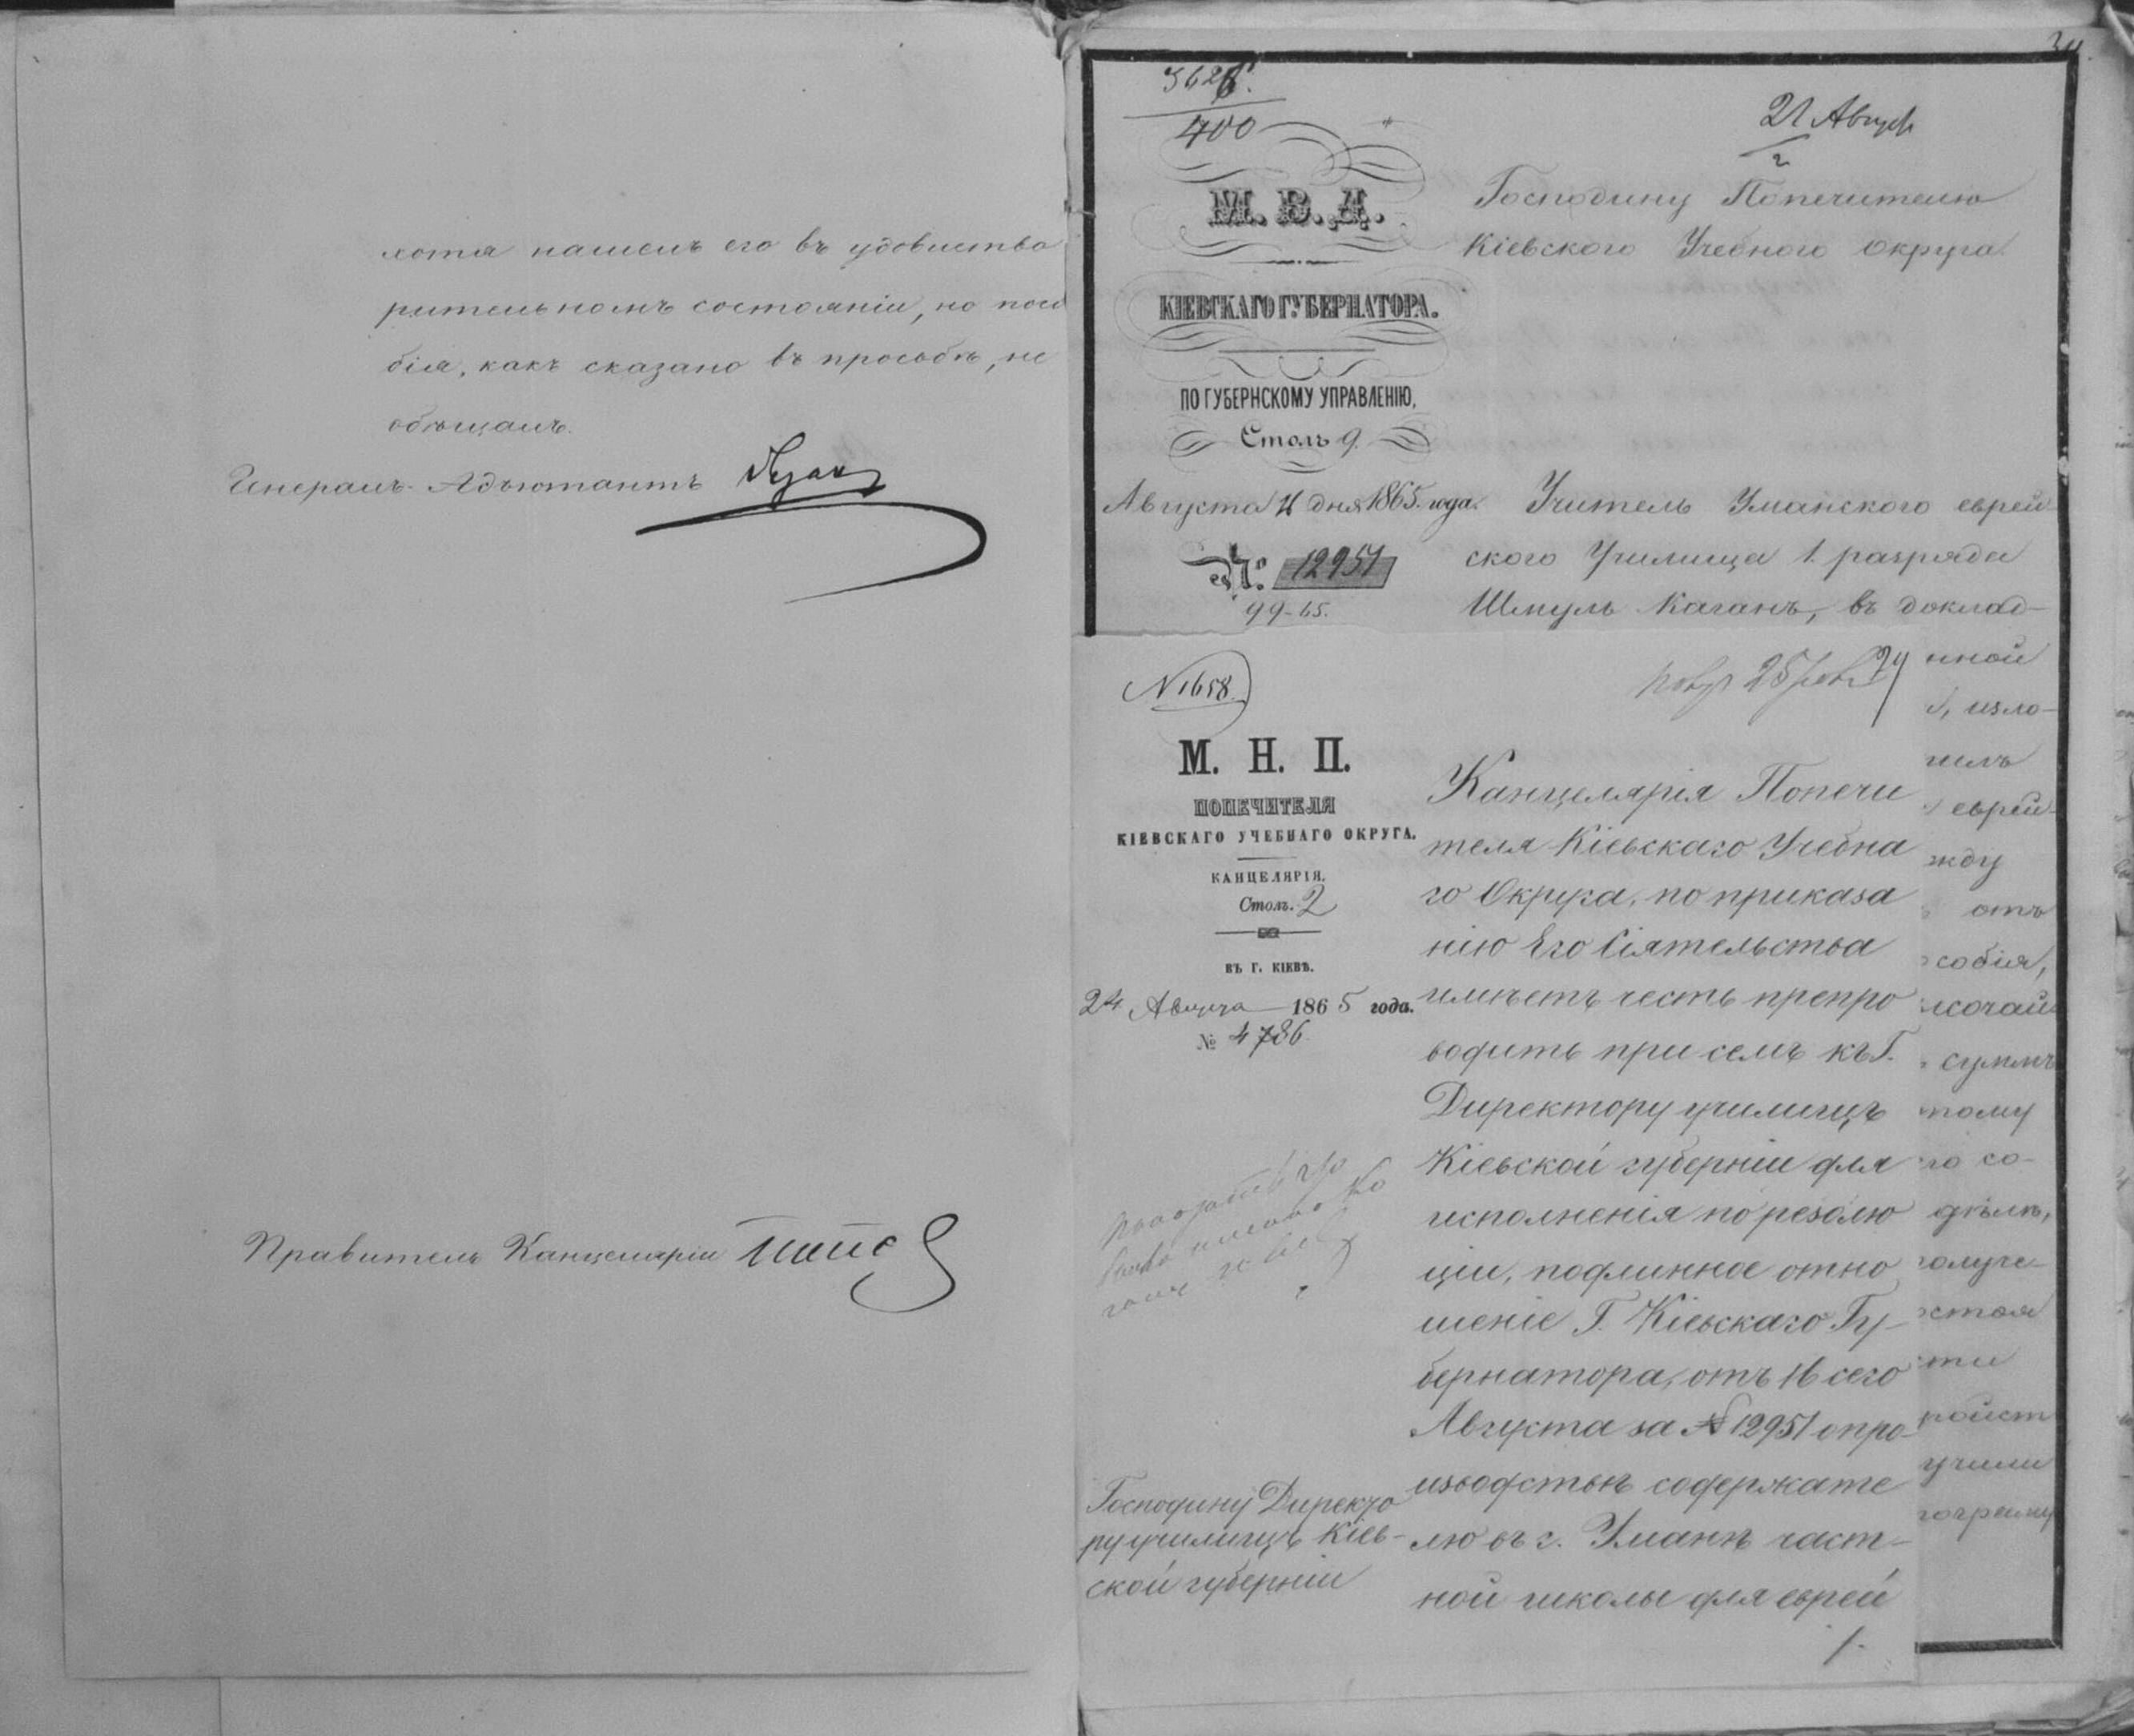 хотя нашелъ его въ удовлетво
рительномъ состояніи, но посо
бія, какъ сказано въ просьбѣ, не
обѣщалъ.
Генералъ-Адъютантъ
Правитель Канцеляріи
34
3626.
400
21 Август
2
М. В. Д.
КІЕВСКАГО ГУБЕРНАТОРА.
ПО ГУБЕРНСКОМУ УПРАВЛЕНІЮ,
Столъ 9.
Августа 16 дня 1865 года.
№ 12951
99-65.
Господину Попечителю
Кіевского Учебного Округа.
Учитель Уманского еврей-
ского Училища 1. разряда
Шмуль Каганъ, въ доклад-
нной
, изло-
чилъ
еврей-
жду
отъ
собія,
сочай
суммъ
тому
го со-
дѣлѣ,
получе-
стоя
сти
ройст
учили
№ 1658.
М. Н. П.
ПОПЕЧИТЕЛЯ
КІЕВСКАГО УЧЕБНАГО ОКРУГА.
КАНЦЕЛЯРІЯ.
Столъ. 2
ВЪ Г. КІЕВѢ.
24 Августа 1865 года.
№ 4786
Господину Директо
ру училищъ Кіев-
ской губерніи
Канцелярія Попечи
теля Кіевскаго Учебна
го Округа, по приказа
нію Его Сіятельства
имѣетъ честь препро
водить при семъ къ Г.
Директору училищъ
Кіевской губерніи для
исполненія по резолю
ціи, подлинное отно
шеніе Г. Кіевскаго Гу-
бернатора, отъ 16 сего
Августа за № 12951 о про-
изводствѣ содержате
лю въ г. Уманѣ част-
ной школы для еврей